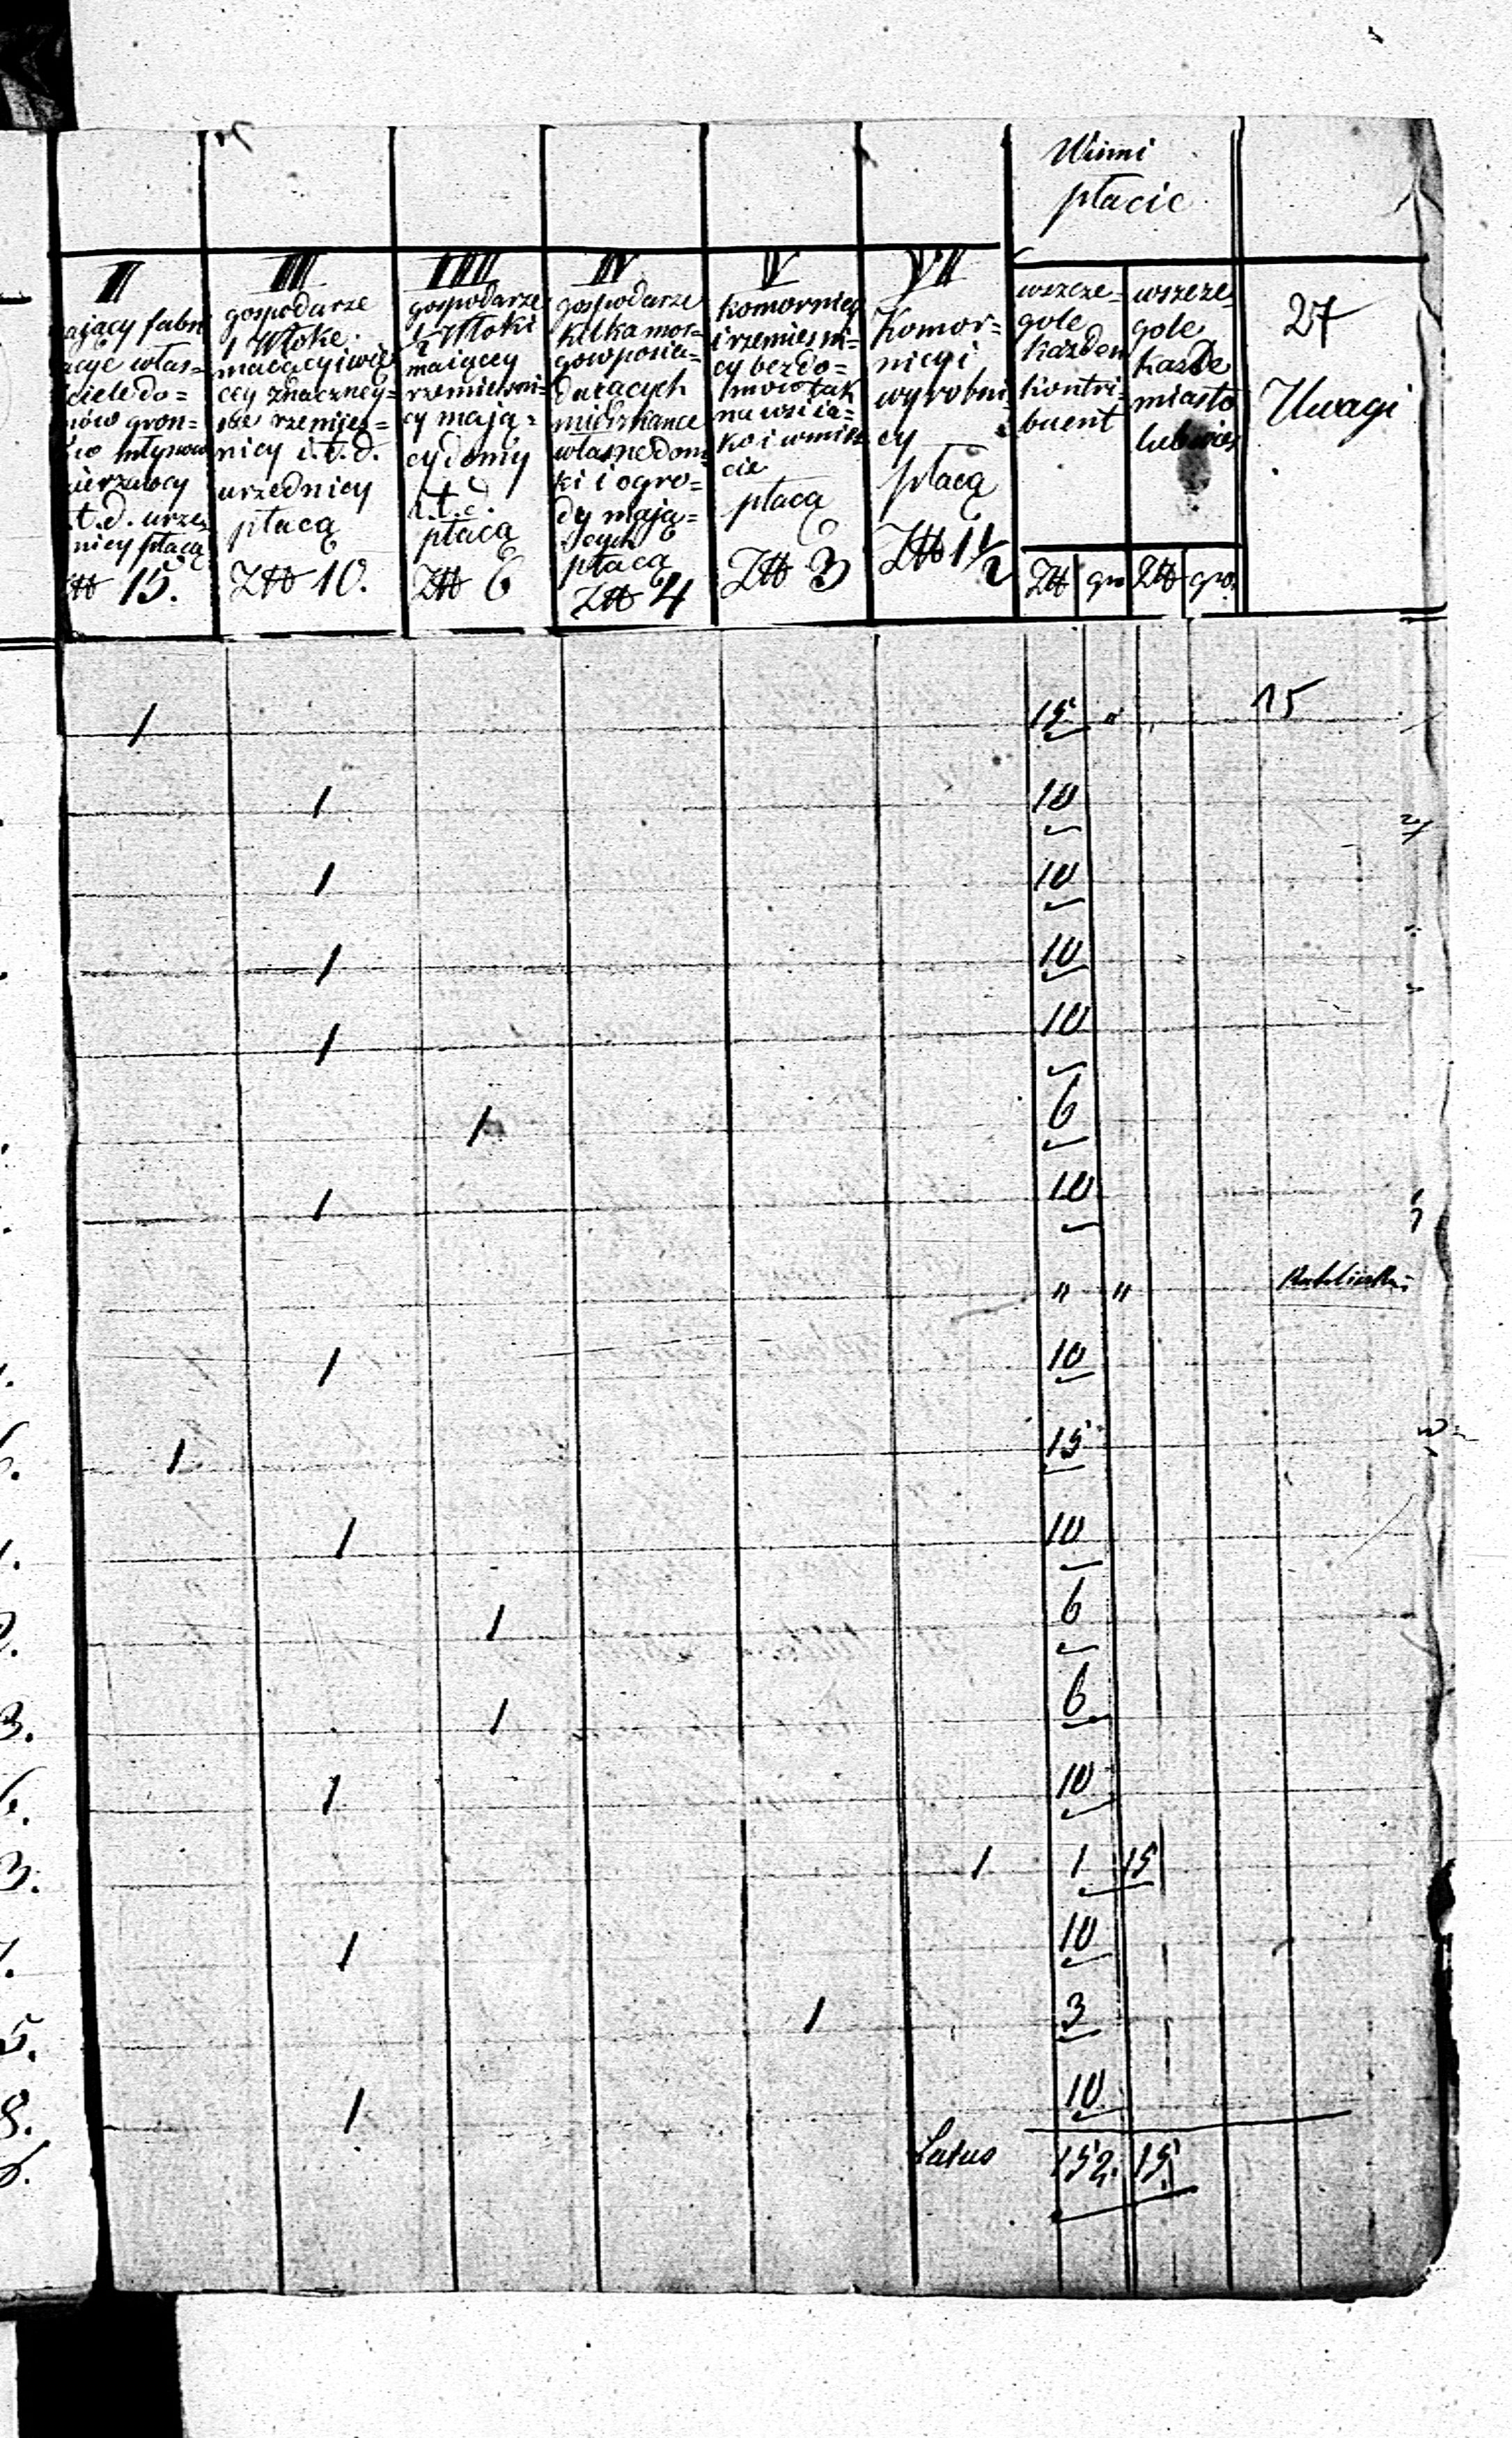 Winni
płacić
II
ający fabry
acye włas=
ciele do=
mów gron=
ów młynow
ierzawcy
i.t.d. urzę
nicy płacą
Zł 15.
III
gospodarze
1 Włokę
maiący i wię
cey znaczney=
sze rzemieś=
nicy i.t.d.
urzędnicy
płacą
Zł 10.
IIII
gospodarze
½ Włoki
maiący
rzemieśni=
cy mają=
cy domy
i.t.d.
płacą
Zł 6
IV
gospodarze
kilka mor=
gow posia=
dających
mieszkance
własne dom=
ki i ogro=
dy mają=
cych
płacą
Zł 4
V
komornicy
i rzemieśni=
cy bez do=
mow tak
na wsi ia=
ko i w mieś
cie
płacą
Zł 3
VII
Komor=
nicy i
wyrobni
cy
płacą
Zł 1½
wszcze=
gole
każden
kontri=
buent
Zł gr
wszcze
gole
każde
miasto
lub wieś
Zł gro.
27
Uwagi
1 15 " 15
1 10
1 10
1 10
1 10
1 6
1 10
" "
1. 1 10
6. 1 15
1. 1 10
2. 1 6
3. 1 6
6. 1 10
3. 1 1 15
7. 1 10
5. 1 3
8. 1 10
Latus 152. 15.